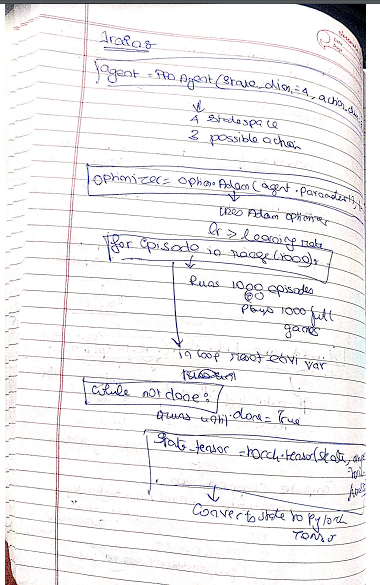 Training
agent = PPO Agent (state_dim = 4, action_dim
4 statespace
2 possible action
optimizer = optim.Adam (agent.parameters(),
uses Adam optimizer
lr > learning rate
for episode in range(1000):
Runs 1000 episodes
Plays 1000 full
games
in loop reset env var
while not done:
Runs until done = True
state_tensor = torch.tensor(state,
Convert state to PyTorch
Tensor